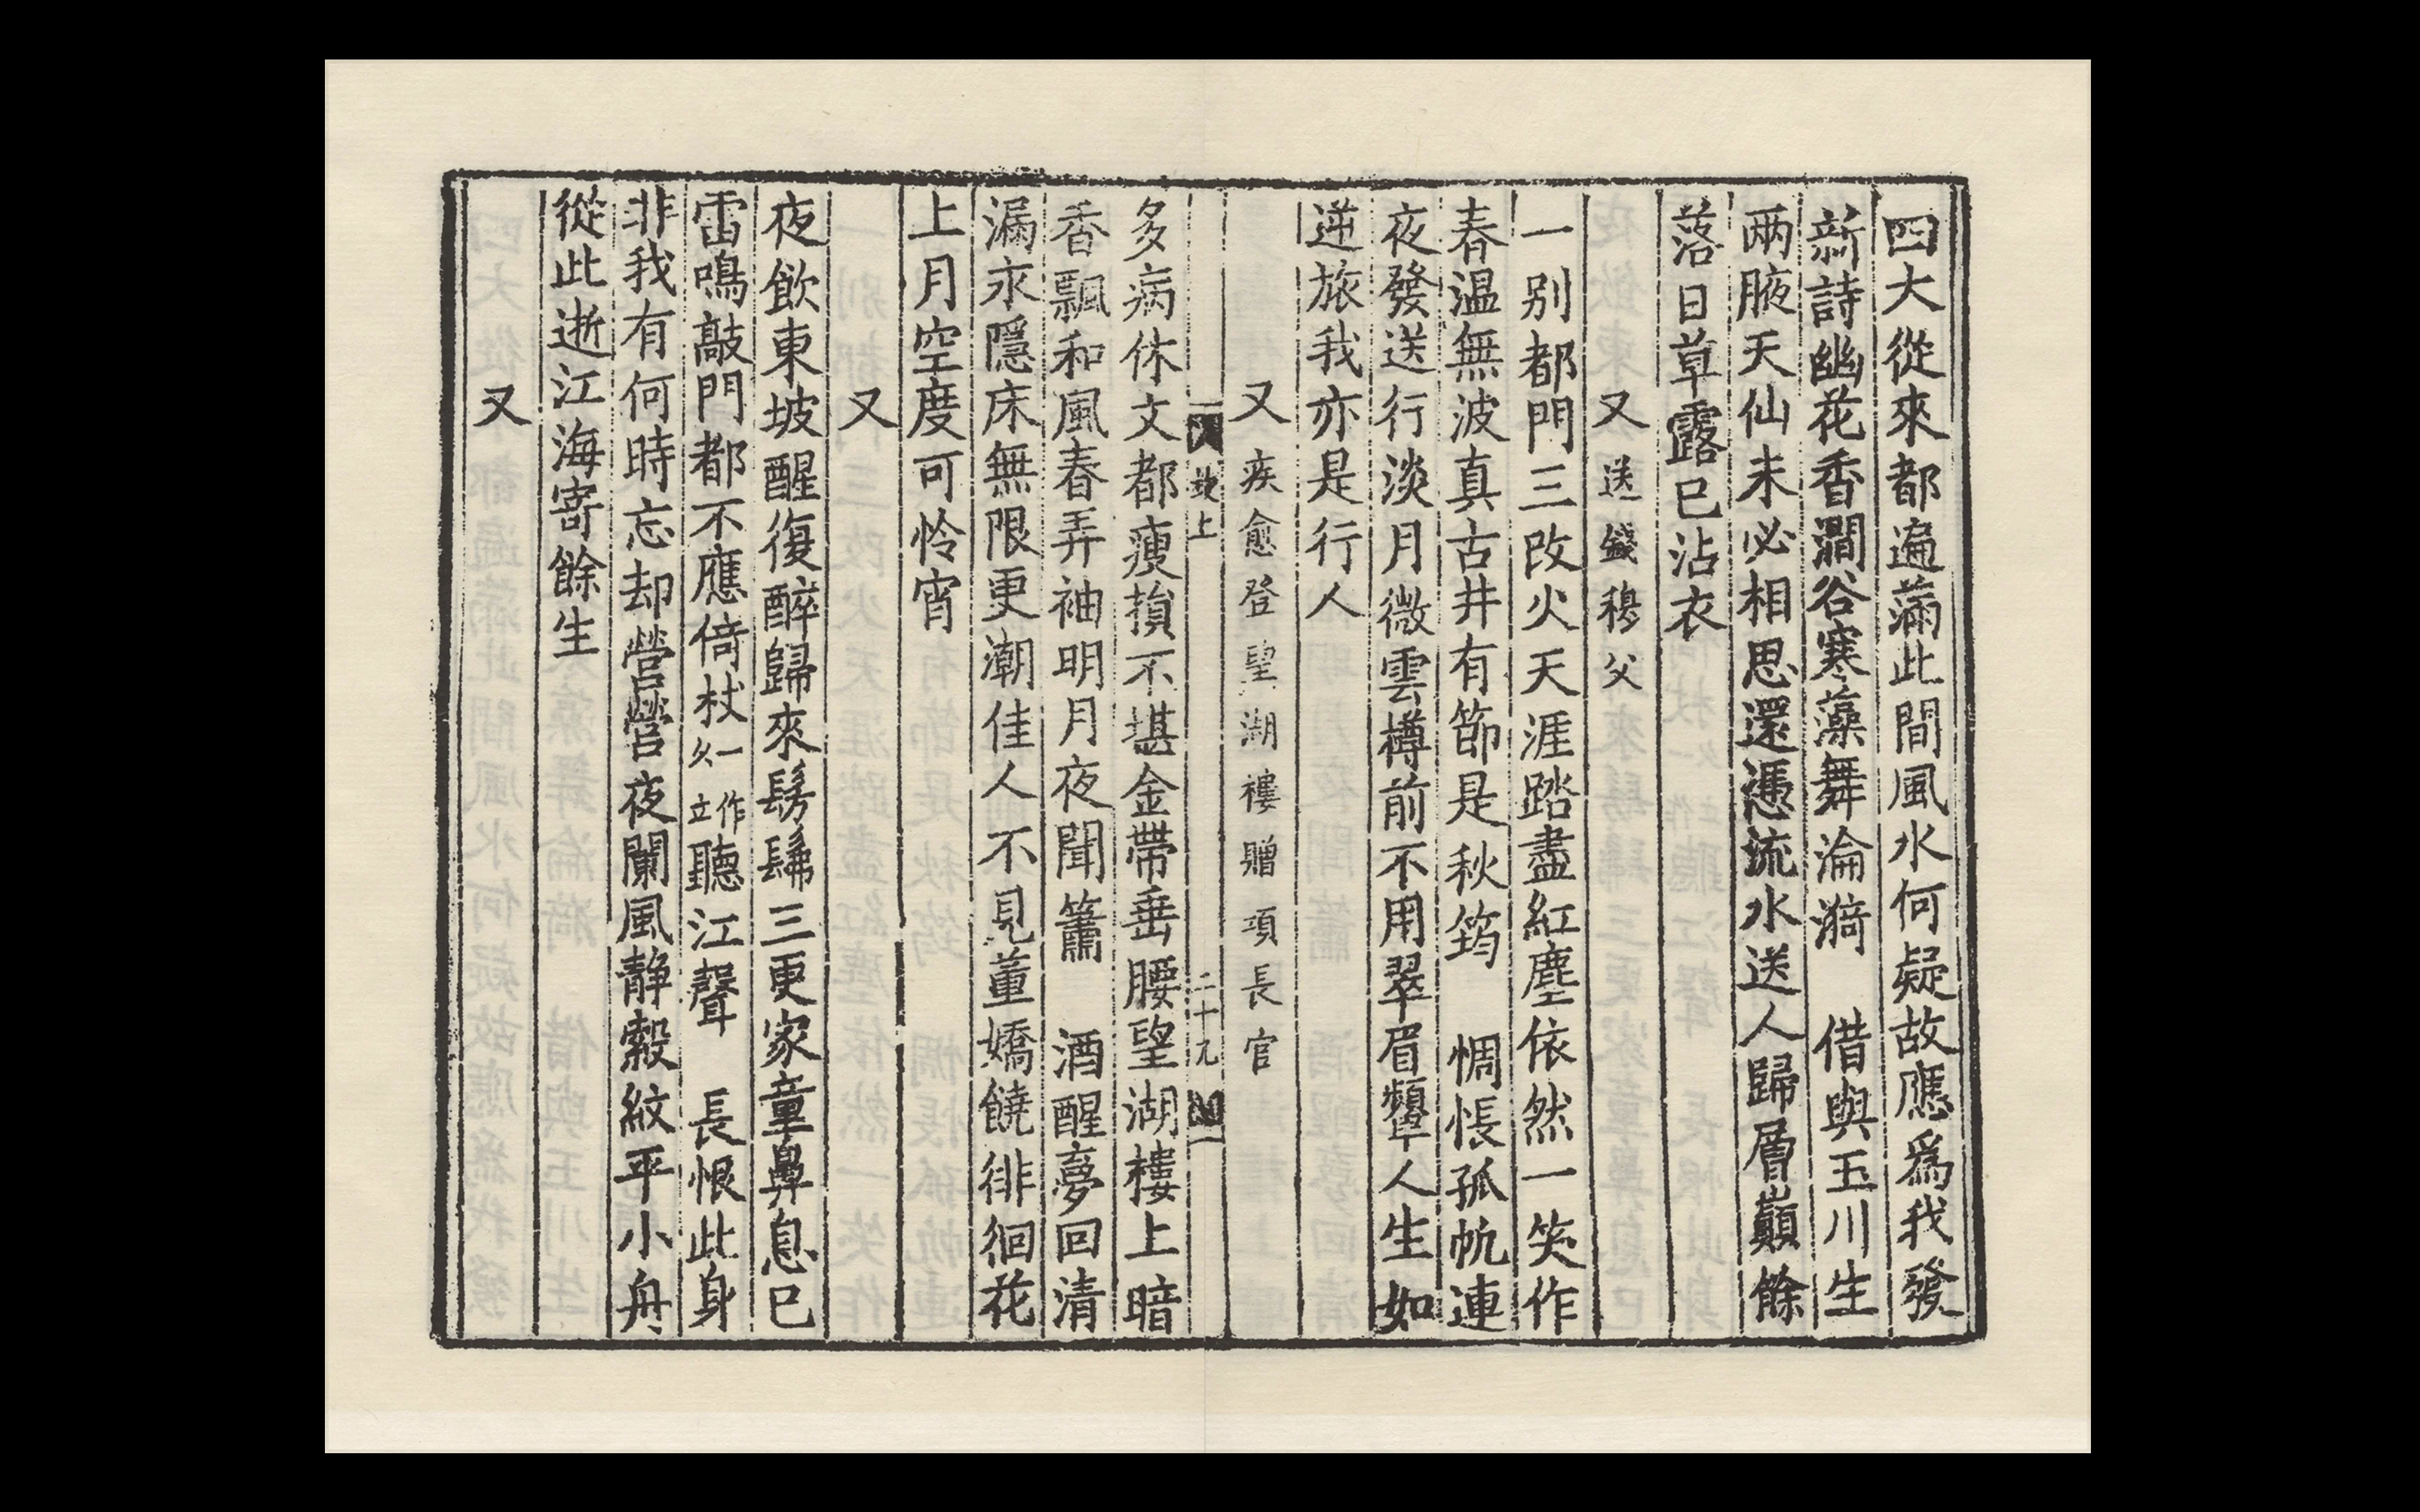 四大從來都遍滿此間風水何疑故應爲我發
新詩幽花香澗谷寒藻舞淪漪　借與玉川生
兩腋天仙未必相思還憑流水送人歸層巔餘
落日草露已沾衣
又　送錢穆父
一別都門三改火天涯踏盡紅塵依然一笑作
春温無波真古井有節是秋筠　惆悵孤帆連
夜發送行淡月微雲樽前不用翠眉顰人生如
逆旅我亦是行人
又　疾愈登望湖樓贈項長官
坡上　二十九
多病休文都瘦損不堪金帶垂腰望湖樓上暗
香飄和風春弄袖明月夜聞簫　酒醒夢回清
漏永隱床無限更潮佳人不見董嬌饒徘徊花
上月空度可怜宵
又
夜飲東坡醒復醉歸來髣髴三更家童鼻息已
雷鳴敲門都不應倚杖一作久立聽江聲　長恨此身
非我有何時忘却營營夜闌風静縠紋平小舟
從此逝江海寄餘生
又